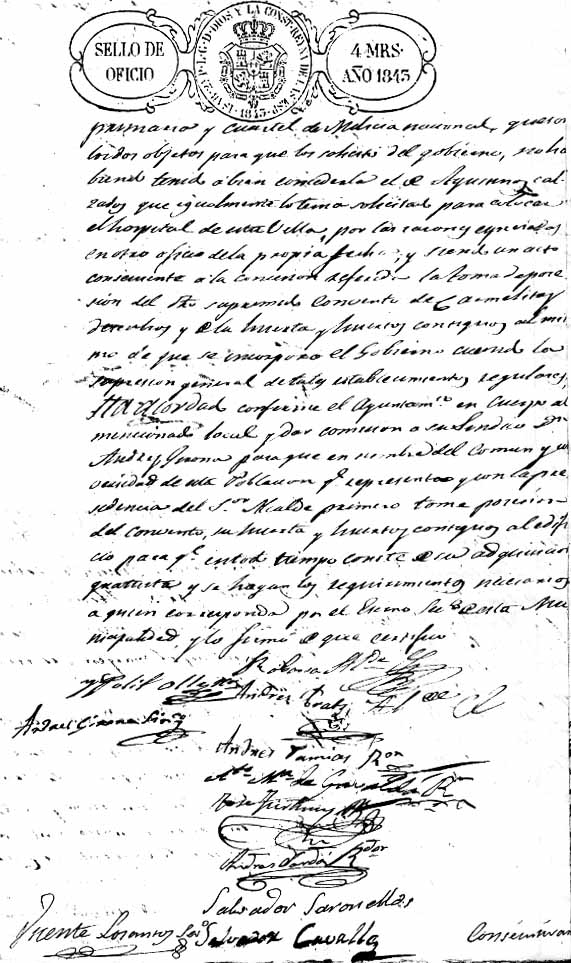 SELLO DE OFICIO
ISABEL 2ª P. L. G. D. DIOS Y LA CONST. REYNA DE LAS ESP. 1843.
4 MRS. AÑO 1843
primaria y Cuartel de Milicia nacional, que son
los dos objetos para que los solicitó del gobierno, no ha
biend tenid á bien concederla el de Agustinos cal-
zados que igualmente lo tenia solicitad para colocar
el hospital de esta Villa, por las razones expresadas
en otro oficio de la propia fecha; y siend un acto
consiguiente á la concesion referida la toma de pose-
sion del dho suprimido Convento de Carmelitas
descalzos y de la huerta y huertos contiguos al mis
mo de que se incorporó el Gobierno cuando la
supresion general de tales establecimientos regulares,
Ha acordad conferirse el Ayuntamto en Cuerpo al
mencionado local y dar comision a su Sindico Dn
Andres Girona para que en nombre del Comun y u
niversidad de esta Poblacion qe representa y con la pre
sidencia del Sor Alcalde primero tome posesion
del Convento, su huerta y huertos contiguos al edifi
cio para qe en tod tiempo conste de su adquisicion
gratuita y se hagan los requirimientos necesarios
a quien corresponda por el Escno Srio de esta Mu
nicipalidad, y lo firmó de que certifico
Andres Prats
Andres Girona Sin
Andres Ramias Ror
Andres Rdor
Salvador Saronellas
Vicente Salvador Cavallé